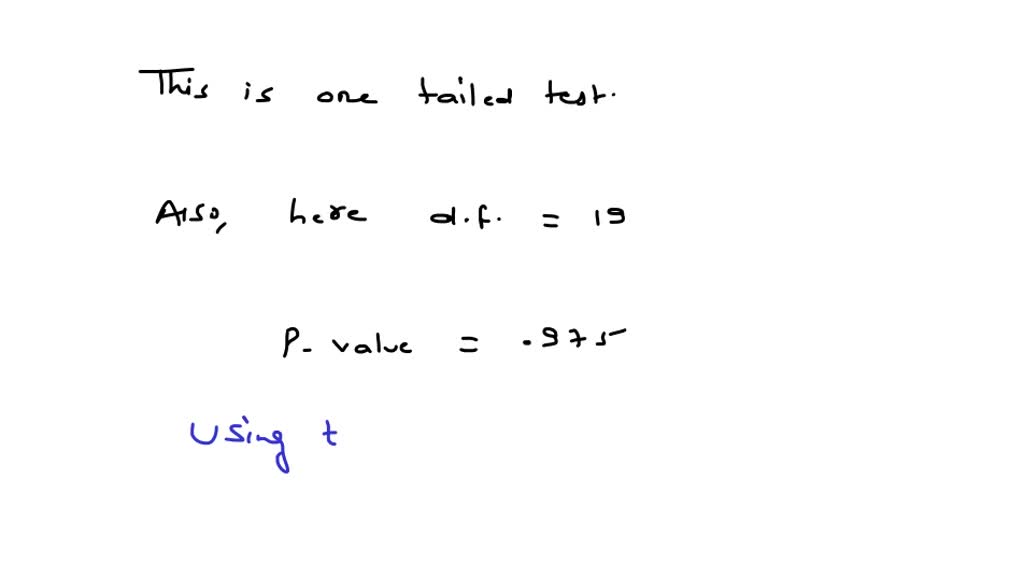 This is one tailed test.
Also, here d.f. = 19
P- value = .975
Using t